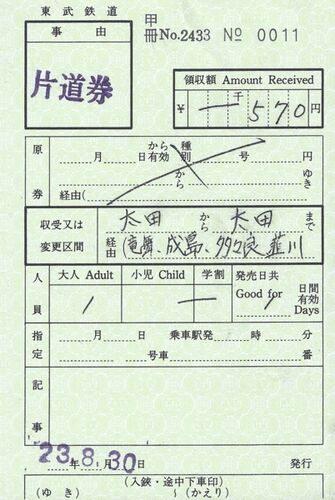 東武鉄道
甲
冊No.2433 No 0011
事由
片道券
領収額 Amount Received
千
¥ 一 570 円
原券
から 種
月 日有効 別 号 円
から ゆき
経由(
収受又は
変更区間
太田 から 太田 まで
経由(竜舞、成島、多々良 韮川
人員
大人 Adult 小児 Child 学割 発売日共
1 一 Good for 1 日間有効 Days
指定
月 日 乗車駅発 時 分
号車 番
記事
23.8.30
年 月 日 発行
(入鋏・途中下車印)
(ゆき) ～(かえり)